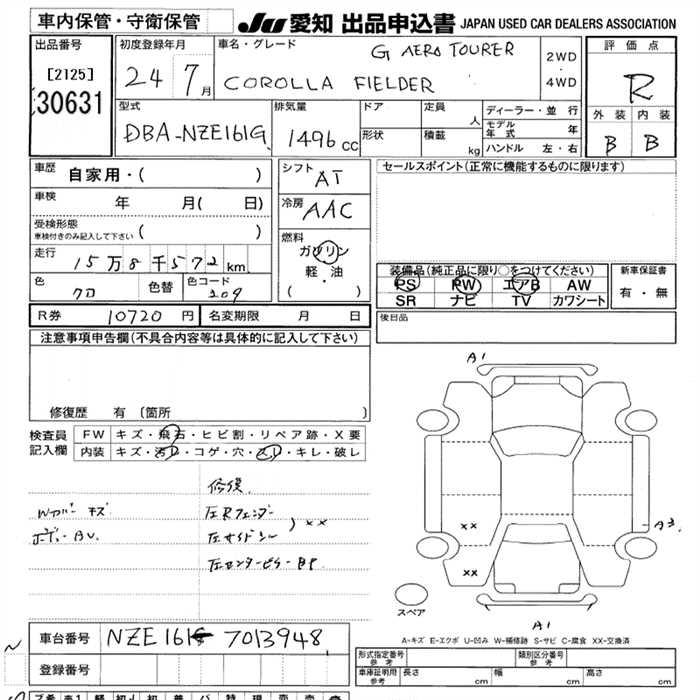 車内保管・守衛保管
JU 愛知 出品申込書 JAPAN USED CAR DEALERS ASSOCIATION
出品番号
[2125]
30631
初度登録年月
24 7月
車名・グレード
G AERO TOURER
COROLLA FIELDER
2WD
4WD
評価点
R
外装 内装
B B
型式
DBA-NZE161G
排気量
1496cc
ドア
形状
定員 人
積載 kg
ディーラー・並行
モデル年式 年
ハンドル 左・右
車歴 自家用・( )
車検 年 月( 日)
受検形態
車検付きのみ記入して下さい ( )
走行 15万8千572km
色 クロ 色替 色コード 209
シフト AT
冷房 AAC
燃料
ガソリン
軽・油
( ・ )
セールスポイント(正常に機能するものに限ります)
装備品(純正品に限り○をつけてください)
PS PW エアB AW
SR ナビ TV カワシート
新車保証書
有・無
R券 10720円 名変期限 月 日
後日品
注意事項申告欄(不具合内容等は具体的に記入して下さい)
修復歴 有 〔箇所 〕
検査員記入欄
FW キズ・飛石・ヒビ割・リペア跡・X要
内装 キズ・汚れ・コゲ・穴・スレ・キレ・破レ
修復
Wカバー キズ
左Rフェンダー
ボディー BU
左サイドシル
) xx
左センターピラー BP
A1
xx
A3
xx
スペア
A1
A-キズ E-エクボ U-凹み W-補修跡 S-サビ C-腐食 XX-交換済
車台番号 NZE161 7013948
登録番号
形式指定番号 参考
類別区分番号 参考
車庫証明用 参考 長さ cm 幅 cm 高さ cm